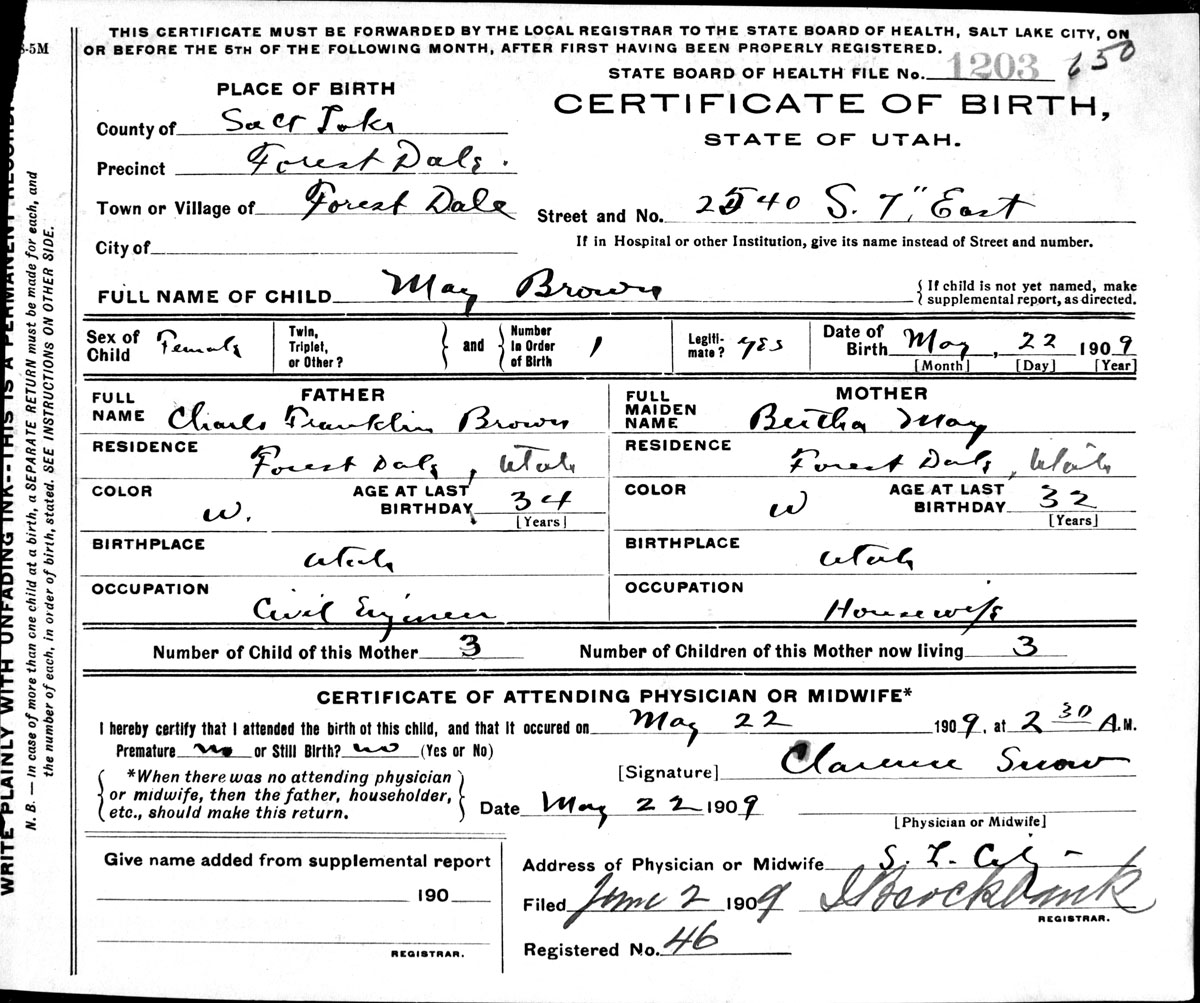 8-5M
THIS CERTIFICATE MUST BE FORWARDED BY THE LOCAL REGISTRAR TO THE STATE BOARD OF HEALTH, SALT LAKE CITY, ON
OR BEFORE THE 5TH OF THE FOLLOWING MONTH, AFTER FIRST HAVING BEEN PROPERLY REGISTERED.
STATE BOARD OF HEALTH FILE No. 1203 650
PLACE OF BIRTH
CERTIFICATE OF BIRTH,
STATE OF UTAH.
County of Salt Lake
Precinct Forest Dale.
Town or Village of Forest Dale
Street and No. 2540 S. 7" East
City of
If in Hospital or other Institution, give its name instead of Street and number.
FULL NAME OF CHILD May Brown
{ If child is not yet named, make
supplemental report, as directed.
Sex of Child Female
Twin, Triplet, or Other?
} and {
Number in Order of Birth 1
Legiti-mate? yes
Date of Birth May, 22 1909
[Month] [Day] [Year]
FATHER
FULL NAME Charles Franklin Brown
MOTHER
FULL MAIDEN NAME Bertha May
RESIDENCE Forest Dale, Utah
RESIDENCE Forest Dale, Utah
COLOR W.
AGE AT LAST BIRTHDAY 34
[Years]
COLOR W
AGE AT LAST BIRTHDAY 32
[Years]
BIRTHPLACE Utah
BIRTHPLACE Utah
OCCUPATION Civil Engineer
OCCUPATION Housewife
Number of Child of this Mother 3
Number of Children of this Mother now living 3
CERTIFICATE OF ATTENDING PHYSICIAN OR MIDWIFE*
I hereby certify that I attended the birth of this child, and that it occured on May 22 1909, at 2 30 A.M.
Premature no or Still Birth? no (Yes or No)
[Signature] Clarence Snow
{ *When there was no attending physician
or midwife, then the father, householder,
etc., should make this return. }
Date May 22 1909
[Physician or Midwife]
Give name added from supplemental report
190
REGISTRAR.
Address of Physician or Midwife S. L. City
Filed June 2 1909 Brockbank
REGISTRAR.
Registered No. 46
WRITE PLAINLY WITH UNFADING INK--THIS IS A PERMANENT RECORD.
N. B. — In case of more than one child at a birth, a SEPARATE RETURN must be made for each, and
the number of each, in order of birth, stated. SEE INSTRUCTIONS ON OTHER SIDE.